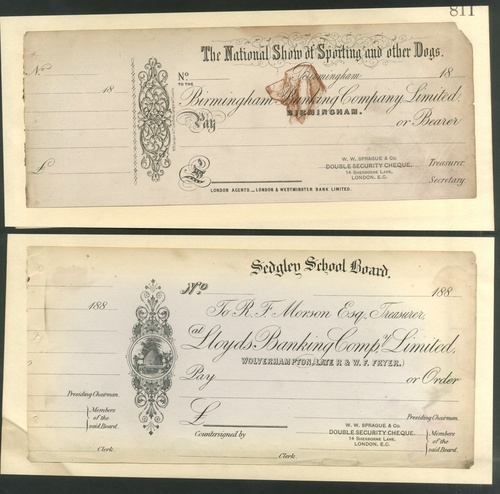 811
The National Show of Sporting and other Dogs.
No
No Birmingham 18
18
TO THE
Birmingham Banking Company Limited.
BIRMINGHAM.
Pay or Bearer
£
£
W. W. SPRAGUE & Co.
DOUBLE SECURITY CHEQUE.
14 SHERBORNE LANE,
LONDON, E.C.
Treasurer
Secretary
LONDON AGENTS _ LONDON & WESTMINSTER BANK LIMITED.
Sedgley School Board.
No 188
188
To R. F. Morson Esq. Treasurer,
at Lloyds Banking Compy. Limited,
WOLVERHAMPTON, (LATE R & W. F. FRYER.)
Pay or Order
£
Presiding Chairman
Members
of the
said Board.
Clerk
Countersigned by
W. W. SPRAGUE & Co.
DOUBLE SECURITY CHEQUE.
14 SHERBORNE LANE,
LONDON, E.C.
Presiding Chairman
Members
of the
said Board.
Clerk